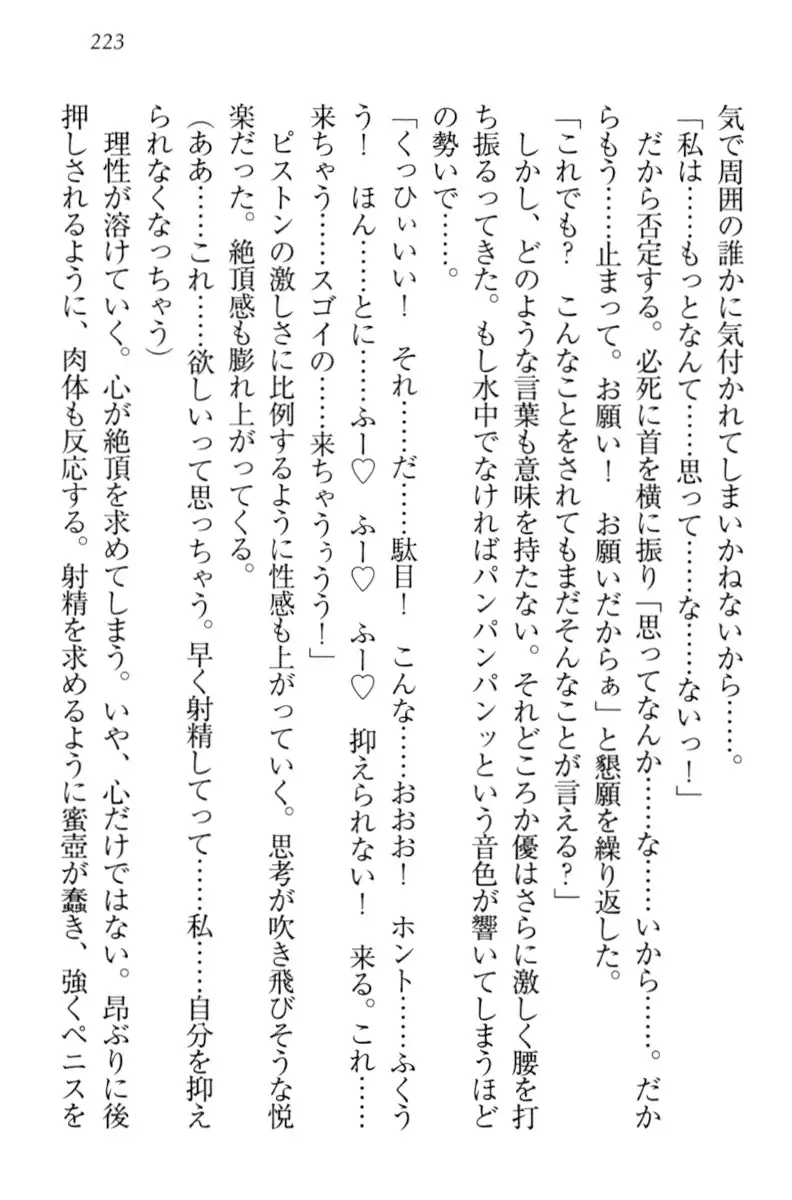 223
気で周囲の誰かに気付かれてしまいかねないから……。
「私は……もっとなんて……思って……な……ないっ！」
だから否定する。必死に首を横に振り「思ってなんか……な……いから……。だか
らもう……止まって。お願い！　お願いだからぁ」と懇願を繰り返した。
「これでも？　こんなことをされてもまだそんなことが言える？」
しかし、どのような言葉も意味を持たない。それどころか優はさらに激しく腰を打
ち振るってきた。もし水中でなければパンパンパンッという音色が響いてしまうほど
の勢いで……。
「くっひぃいい！　それ……だ……駄目！　こんな……おおお！　ホント……ふくう
う！　ほん……とに……ふー♡　ふー♡　ふー♡　抑えられない！　来る。これ……
来ちゃう……スゴイの……来ちゃうぅうう！」
ピストンの激しさに比例するように性感も上がっていく。思考が吹き飛びそうな悦
楽だった。絶頂感も膨れ上がってくる。
（ああ……これ……欲しいって思っちゃう。早く射精してって……私……自分を抑え
られなくなっちゃう）
理性が溶けていく。心が絶頂を求めてしまう。いや、心だけではない。昂ぶりに後
押しされるように、肉体も反応する。射精を求めるように蜜壺が蠢き、強くペニスを